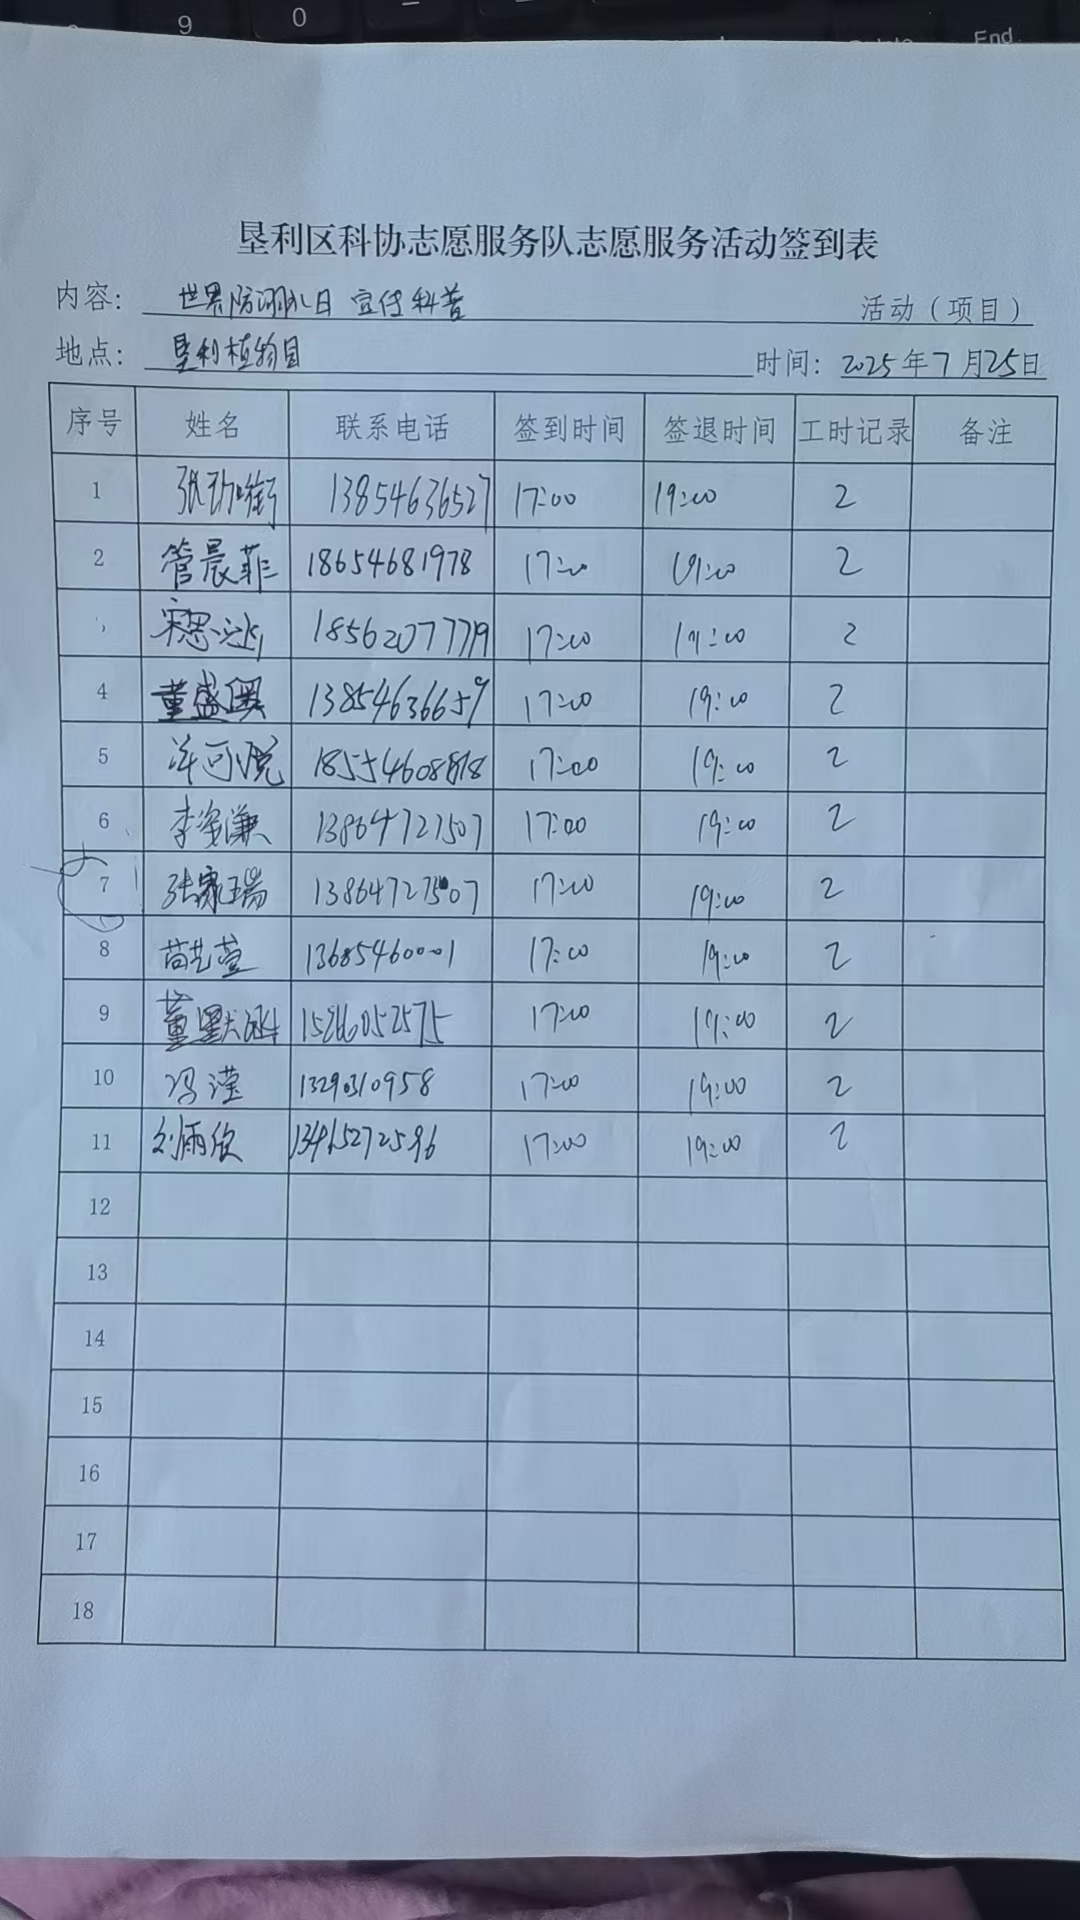 9 0
End
垦利区科协志愿服务队志愿服务活动签到表
内容: 世界防溺水日 宣传科普 活动（项目）
地点: 垦利植物园 时间: 2025年7月25日
序号 姓名 联系电话 签到时间 签退时间 工时记录 备注
1 张 13854636527 17:00 19:00 2
2 管晨菲 18654681978 17:00 19:00 2
宋思 18562077719 17:00 19:00 2
4 董盛 13854636659 17:00 19:00 2
5 许可悦 18554608818 17:00 19:00 2
6 李 谦 13864727507 17:00 19:00 2
7 张家瑞 13864727507 17:00 19:00 2
8 苗艺萱 13685460001 17:00 19:00 2
9 董默涵 15266052575 17:00 19:00 2
10 冯滢 13290310958 17:00 19:00 2
11 刘雨欣 13465272596 17:00 19:00 2
12
13
14
15
16
17
18